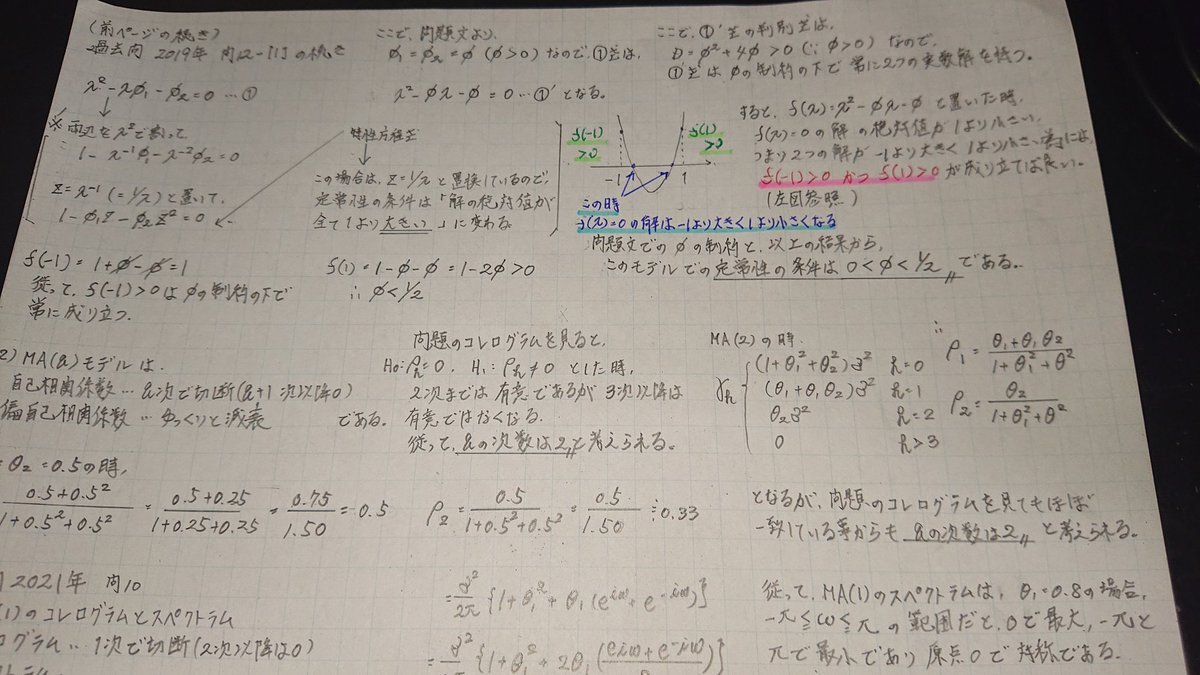 (前ページの続き)
過去問 2019年 問12-[1]の続き
x²-xφ₁-φ₂=0 …①
※両辺をx²で割って、
1-x⁻¹φ₁-x⁻²φ₂=0
z=x⁻¹(=1/x)と置いて、
1-φ₁z-φ₂z²=0
特性方程式
この場合は、z=1/xと置換しているので、
定常性の条件は「解の絶対値が
全て1より大きい」に変わる。
ここで、問題文より、
φ₁=φ₂=φ (φ>0) なので、①式は、
x²-φx-φ=0 …①' となる。
ここで、①'式の判別式は、
D=φ²+4φ>0 (∵φ>0) なので、
①'式はφの制約の下で常に2つの実数解を持つ。
すると、f(x)=x²-φx-φ と置いた時、
f(x)=0の解の絶対値が1より小さい、
つまり2つの解が-1より大きく1より小さい為には、
f(-1)>0 かつ f(1)>0 が成り立てば良い。
(左図参照)
f(-1)
>0
f(1)
>0
-1
1
この時
f(x)=0の解は-1より大きく1より小さくなる
問題文でのφの制約と、以上の結果から、
このモデルでの定常性の条件は 0<φ<1/2 である。
f(-1)=1+φ-φ=1
従って、f(-1)>0はφの制約の下で
常に成り立つ。
f(1)=1-φ-φ=1-2φ>0
∴φ<1/2
2) MA(q)モデルは、
自己相関係数…q次で切断(q+1次以降0)
偏自己相関係数…ゆっくりと減衰 である。
問題のコレログラムを見ると、
H₀:ρₕ=0, H₁:ρₕ≠0 とした時、
2次までは有意であるが3次以降は
有意ではなくなる。
従って、qの次数は2と考えられる。
MA(2)の時
γₕ
(1+θ₁²+θ₂²)σ² h=0
(θ₁+θ₁θ₂)σ² h=1
θ₂σ² h=2
0 h>3
∴
ρ₁=(θ₁+θ₁θ₂)/(1+θ₁²+θ²)
ρ₂=θ₂/(1+θ₁²+θ²)
=θ₂=0.5の時、
(0.5+0.5²)/(1+0.5²+0.5²)=(0.5+0.25)/(1+0.25+0.25)=0.75/1.50=0.5
ρ₂=0.5/(1+0.5²+0.5²)=0.5/1.50≒0.33
となるが、問題のコレログラムを見てもほぼ
一致している事からも qの次数は2 と考えられる。
2021年 問10
(1)のコレログラムとスペクトラム
ログラム…1次で切断(2次以降は0)
=σ²/2π{1+θ₁²+θ₁(e^iω+e^-iω)}
従って、MA(1)のスペクトラムは、θ₁=0.8の場合、
-π≦ω≦πの範囲だと、0で最大、-πと
πで最小であり原点0で対称である。